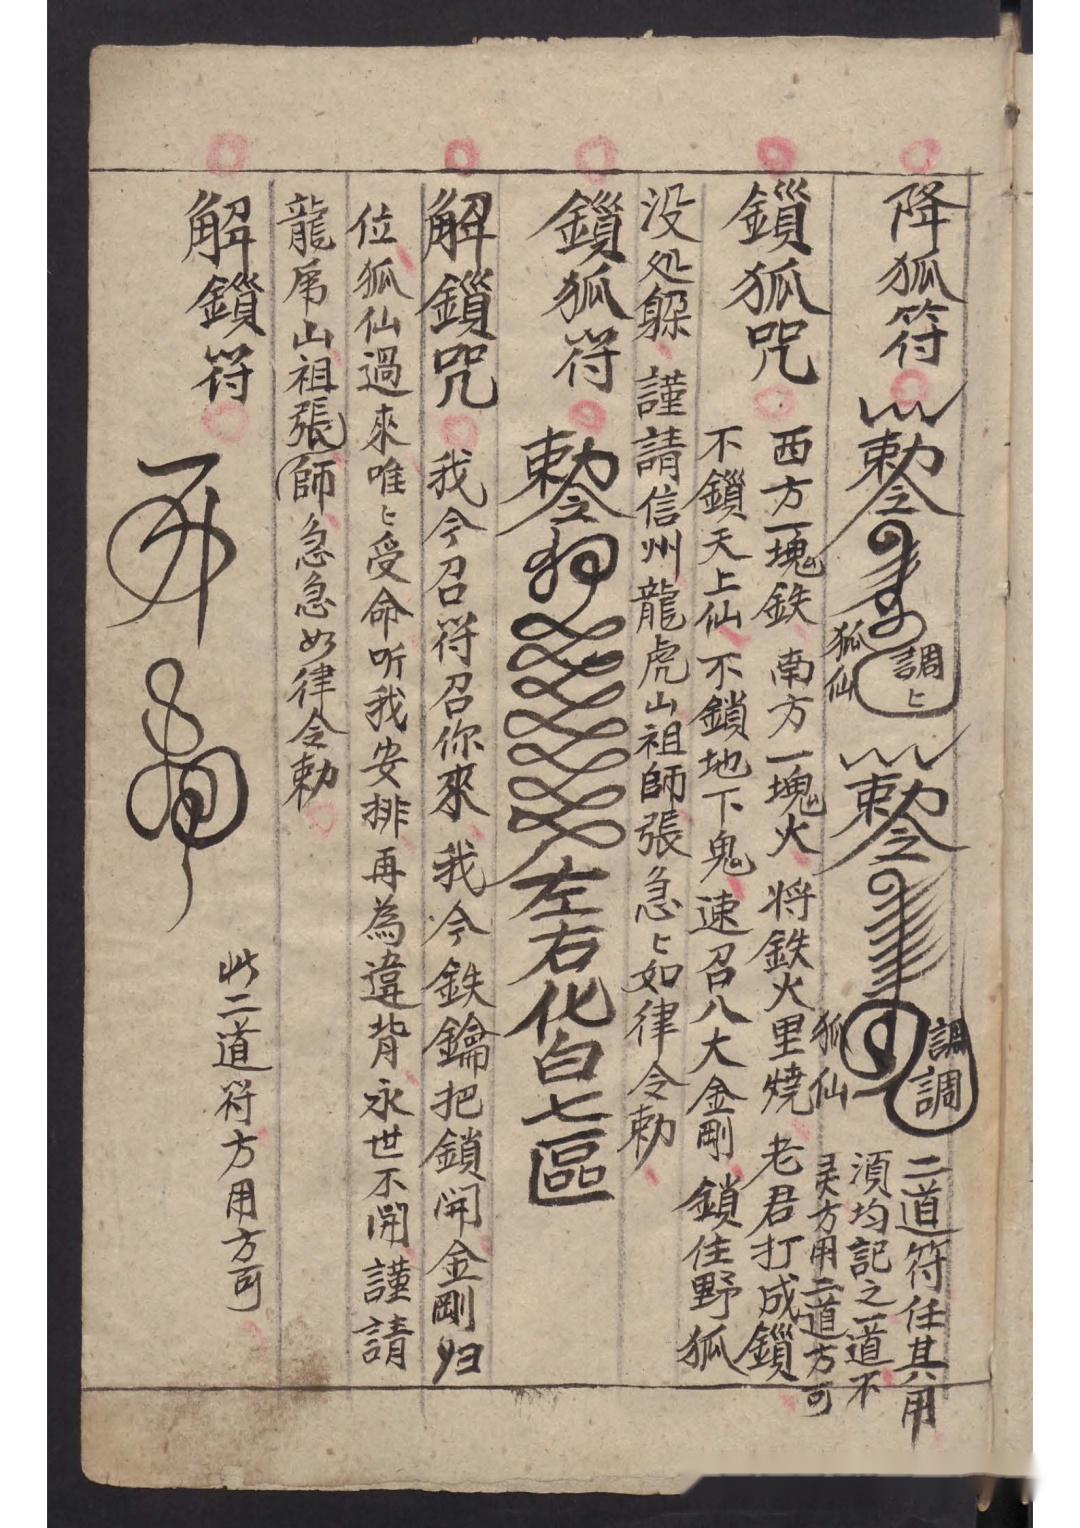 降狐符
勅令
狐仙
調〻
勅令
狐仙
調調
二道符任其用
須均記之一道不
灵方用二道方可
鎖狐咒
西方一塊鉄 南方一塊火 将鉄火里燒 老君打成鎖
不鎖天上仙 不鎖地下鬼 速召八大金剛 鎖住野狐
没処躲 謹請信州龍虎山祖師張急〻如律令勅
鎖狐符
勅令
左右化白七區
解鎖咒 我今召符召你來 我今鉄鑰把鎖開金剛归
位狐仙過來唯〻受命听我安排再為違背永世不開謹請
龍虎山祖張師急急如律令勅
解鎖符
此二道符方用方可